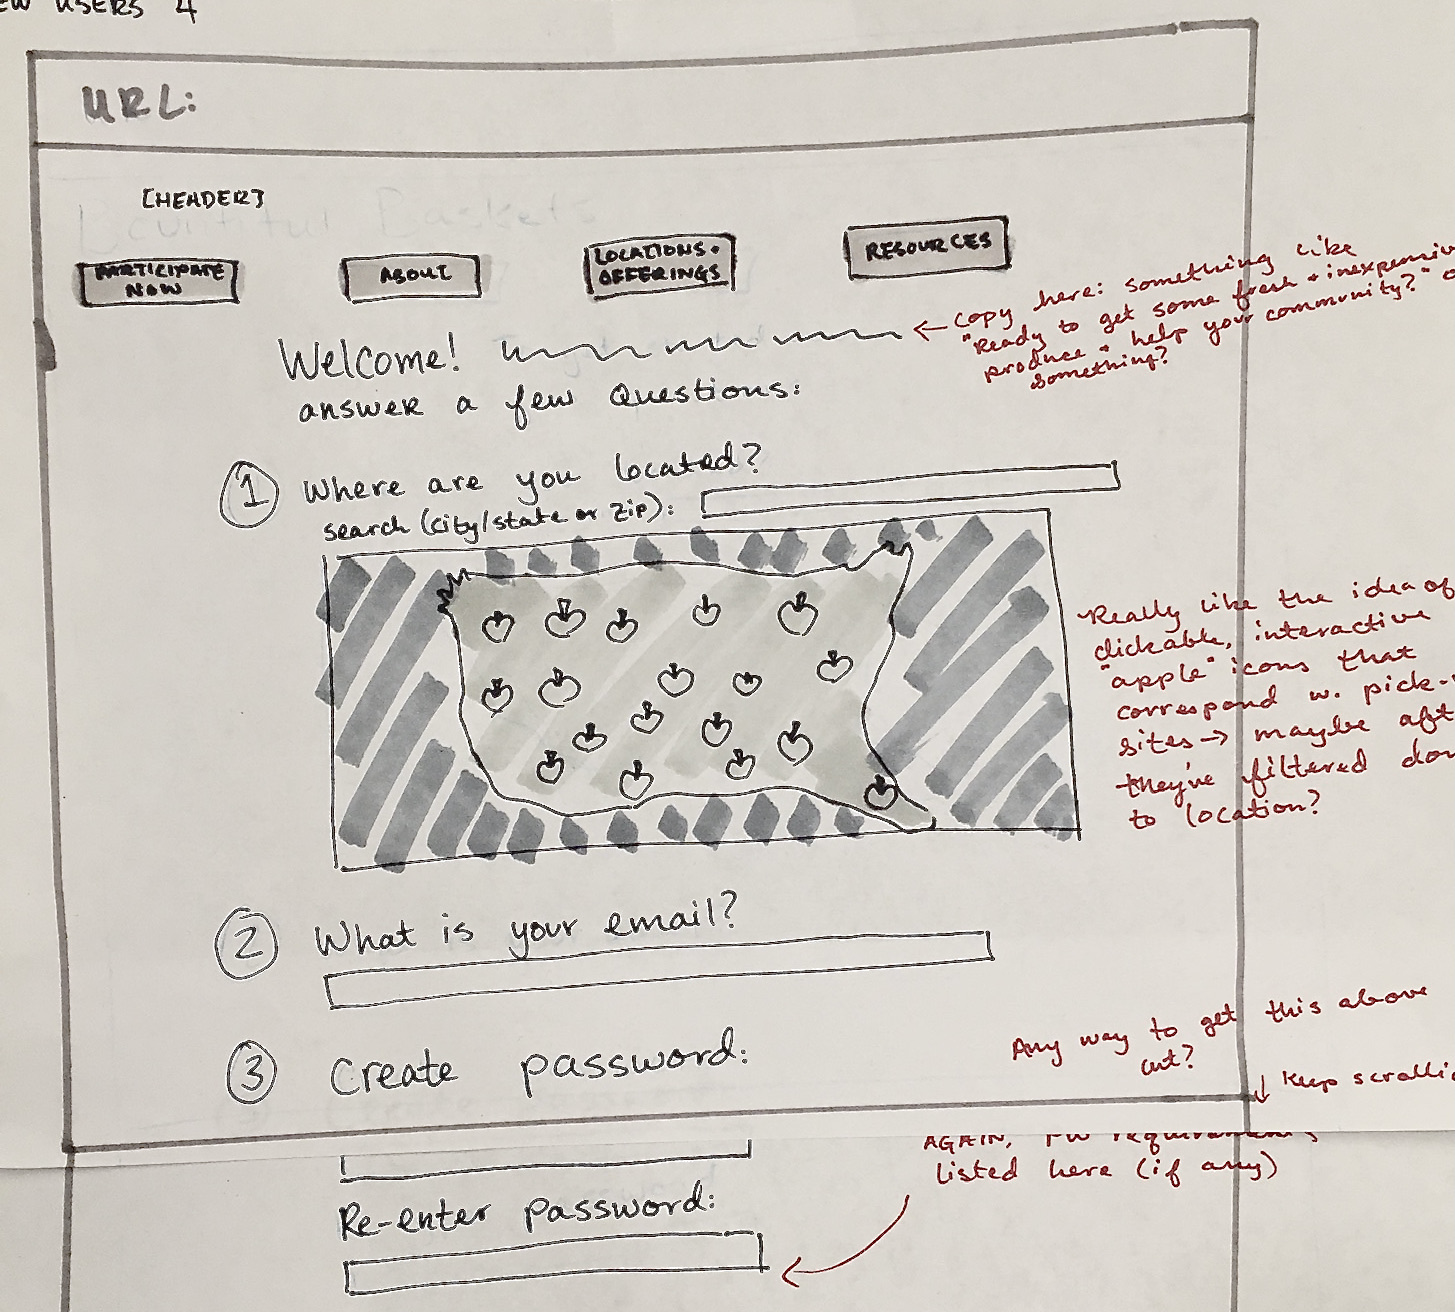 USERS 4
URL:
[HEADER]
Bountiful Baskets
PARTICIPATE
NOW
ABOUT
LOCATIONS +
OFFERINGS
RESOURCES
Welcome!
answer a few questions:
← copy here: something like
"Ready to get some fresh + inexpensiv
produce + help your community?" o
something?
1 Where are you located?
search (city/state or zip):
Really like the idea of
clickable, interactive
"apple" icons that
correspond w. pick-
sites → maybe aft
they've filtered dow
to location?
2 What is your email?
3 Create password:
Any way to get this above
cut?
↓ Keep scrolli
AGAIN, PW requirements
listed here (if any)
Re-enter password: